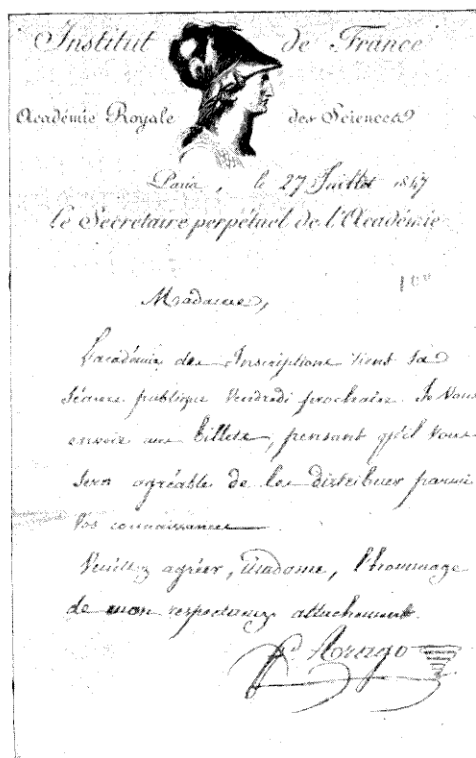 Institut de France
Académie Royale des Sciences
Paris, le 27 Juillet 1847
Le Secrétaire perpétuel de l'Académie
Madame,
L'académie des Inscriptions tient sa
séance publique Vendredi prochain. Je vous
envoie billets, pensant qu'il vous
sera agréable de les distribuer parmi
vos connaissances
Veuillez agréer, Madame, l'hommage
de mon respectueux attachement.
F. Arago